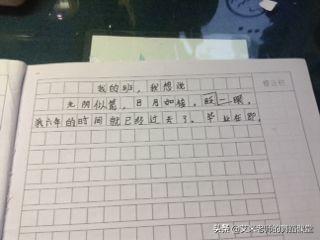 我的班,我想说
光阴似箭,日月如梭,眨一眼,
我六年的时间就已经过去了。毕业在即,
头条 老师的课堂